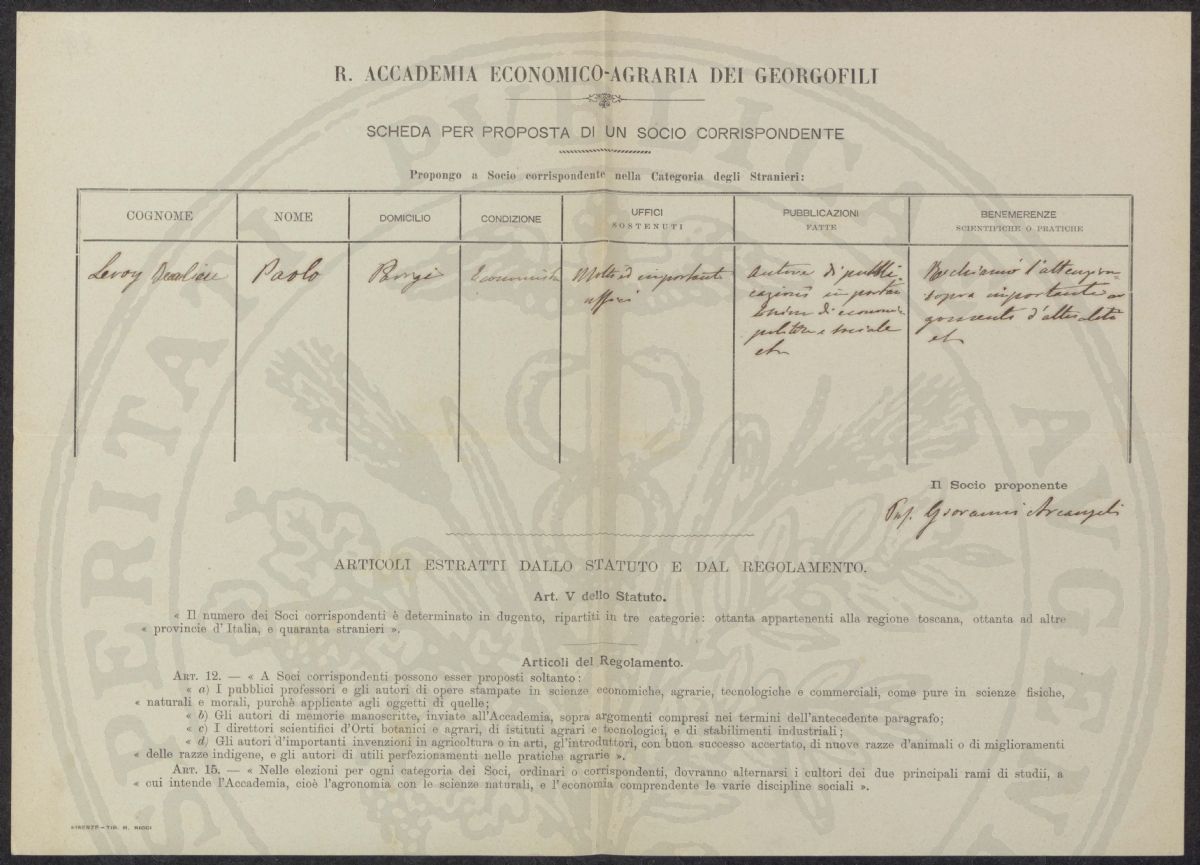 R. ACCADEMIA ECONOMICO-AGRARIA DEI GEORGOFILI
SCHEDA PER PROPOSTA DI UN SOCIO CORRISPONDENTE
Propongo a Socio corrispondente nella Categoria degli Stranieri:
COGNOME
NOME
DOMICILIO
CONDIZIONE
UFFICI
SOSTENUTI
PUBBLICAZIONI
FATTE
BENEMERENZE
SCIENTIFICHE O PRATICHE
Leroy Beaulieu
Paolo
Parigi
Economista
Molti ed importanti
uffici
Autore di pubbli
cazioni importan
tissime di economia
politica e sociale
etc
Richiamò l'attenzione
sopra importante ar
gomento d'attualità
etc
Il Socio proponente
Prof. Giovanni Arcangeli
ARTICOLI ESTRATTI DALLO STATUTO E DAL REGOLAMENTO.
Art. V dello Statuto.
« Il numero dei Soci corrispondenti è determinato in dugento, ripartiti in tre categorie: ottanta appartenenti alla regione toscana, ottanta ad altre
« provincie d'Italia, e quaranta stranieri ».
Articoli del Regolamento.
ART. 12. — « A Soci corrispondenti possono esser proposti soltanto:
« a) I pubblici professori e gli autori di opere stampate in scienze economiche, agrarie, tecnologiche e commerciali, come pure in scienze fisiche,
« naturali e morali, purchè applicate agli oggetti di quelle;
« b) Gli autori di memorie manoscritte, inviate all'Accademia, sopra argomenti compresi nei termini dell'antecedente paragrafo;
« c) I direttori scientifici d'Orti botanici e agrari, di istituti agrari e tecnologici, e di stabilimenti industriali;
« d) Gli autori d'importanti invenzioni in agricoltura o in arti, gl'introduttori, con buon successo accertato, di nuove razze d'animali o di miglioramenti
« delle razze indigene, e gli autori di utili perfezionamenti nelle pratiche agrarie ».
ART. 15. — « Nelle elezioni per ogni categoria dei Soci, ordinari o corrispondenti, dovranno alternarsi i cultori dei due principali rami di studii, a
« cui intende l'Accademia, cioè l'agronomia con le scienze naturali, e l'economia comprendente le varie discipline sociali ».
FIRENZE – TIP. M. RICCI
PROSPERITATI PVBLICAE AVGENDAE